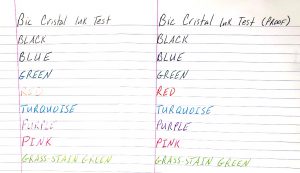 Bic Cristal Ink Test
BLACK
BLUE
GREEN
RED
TURQUOISE
PURPLE
PINK
GRASS STAIN GREEN
Bic Cristal Ink Test (PROOF)
BLACK
BLUE
GREEN
RED
TURQUOISE
PURPLE
PINK
GRASS STAIN GREEN